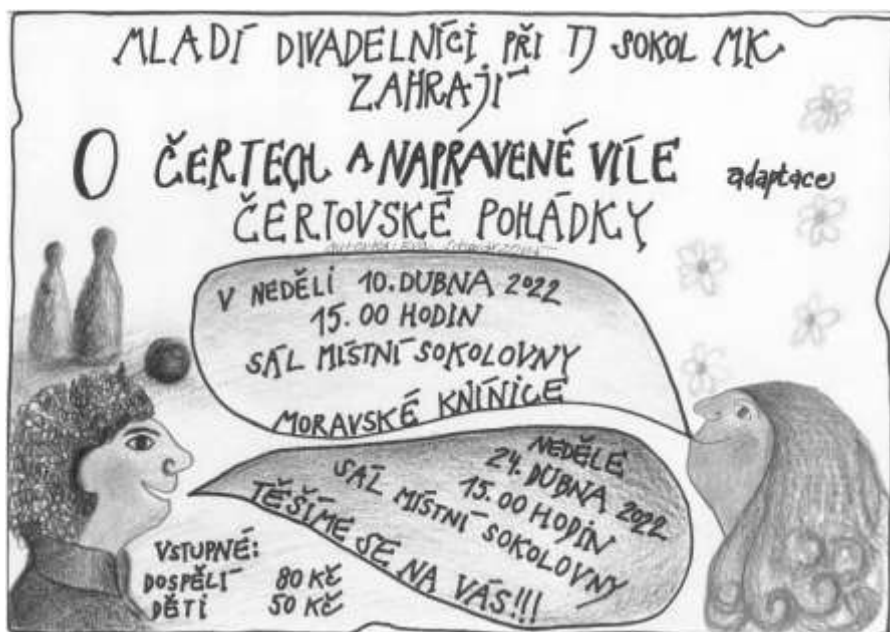 MLADÍ DIVADELNÍCI PŘI TJ SOKOL MK
ZAHRAJÍ
O ČERTECH A NAPRAVENÉ VÍLE
adaptace
ČERTOVSKÉ POHÁDKY
autorka: Eva
V NEDĚLI 10. DUBNA 2022
15.00 HODIN
SÁL MÍSTNÍ SOKOLOVNY
MORAVSKÉ KNÍNICE
NEDĚLE
24. DUBNA 2022
15.00 HODIN
SÁL MÍSTNÍ SOKOLOVNY
TĚŠÍME SE NA VÁS!!!
VSTUPNÉ:
DOSPĚLÍ 80 KČ
DĚTI 50 KČ